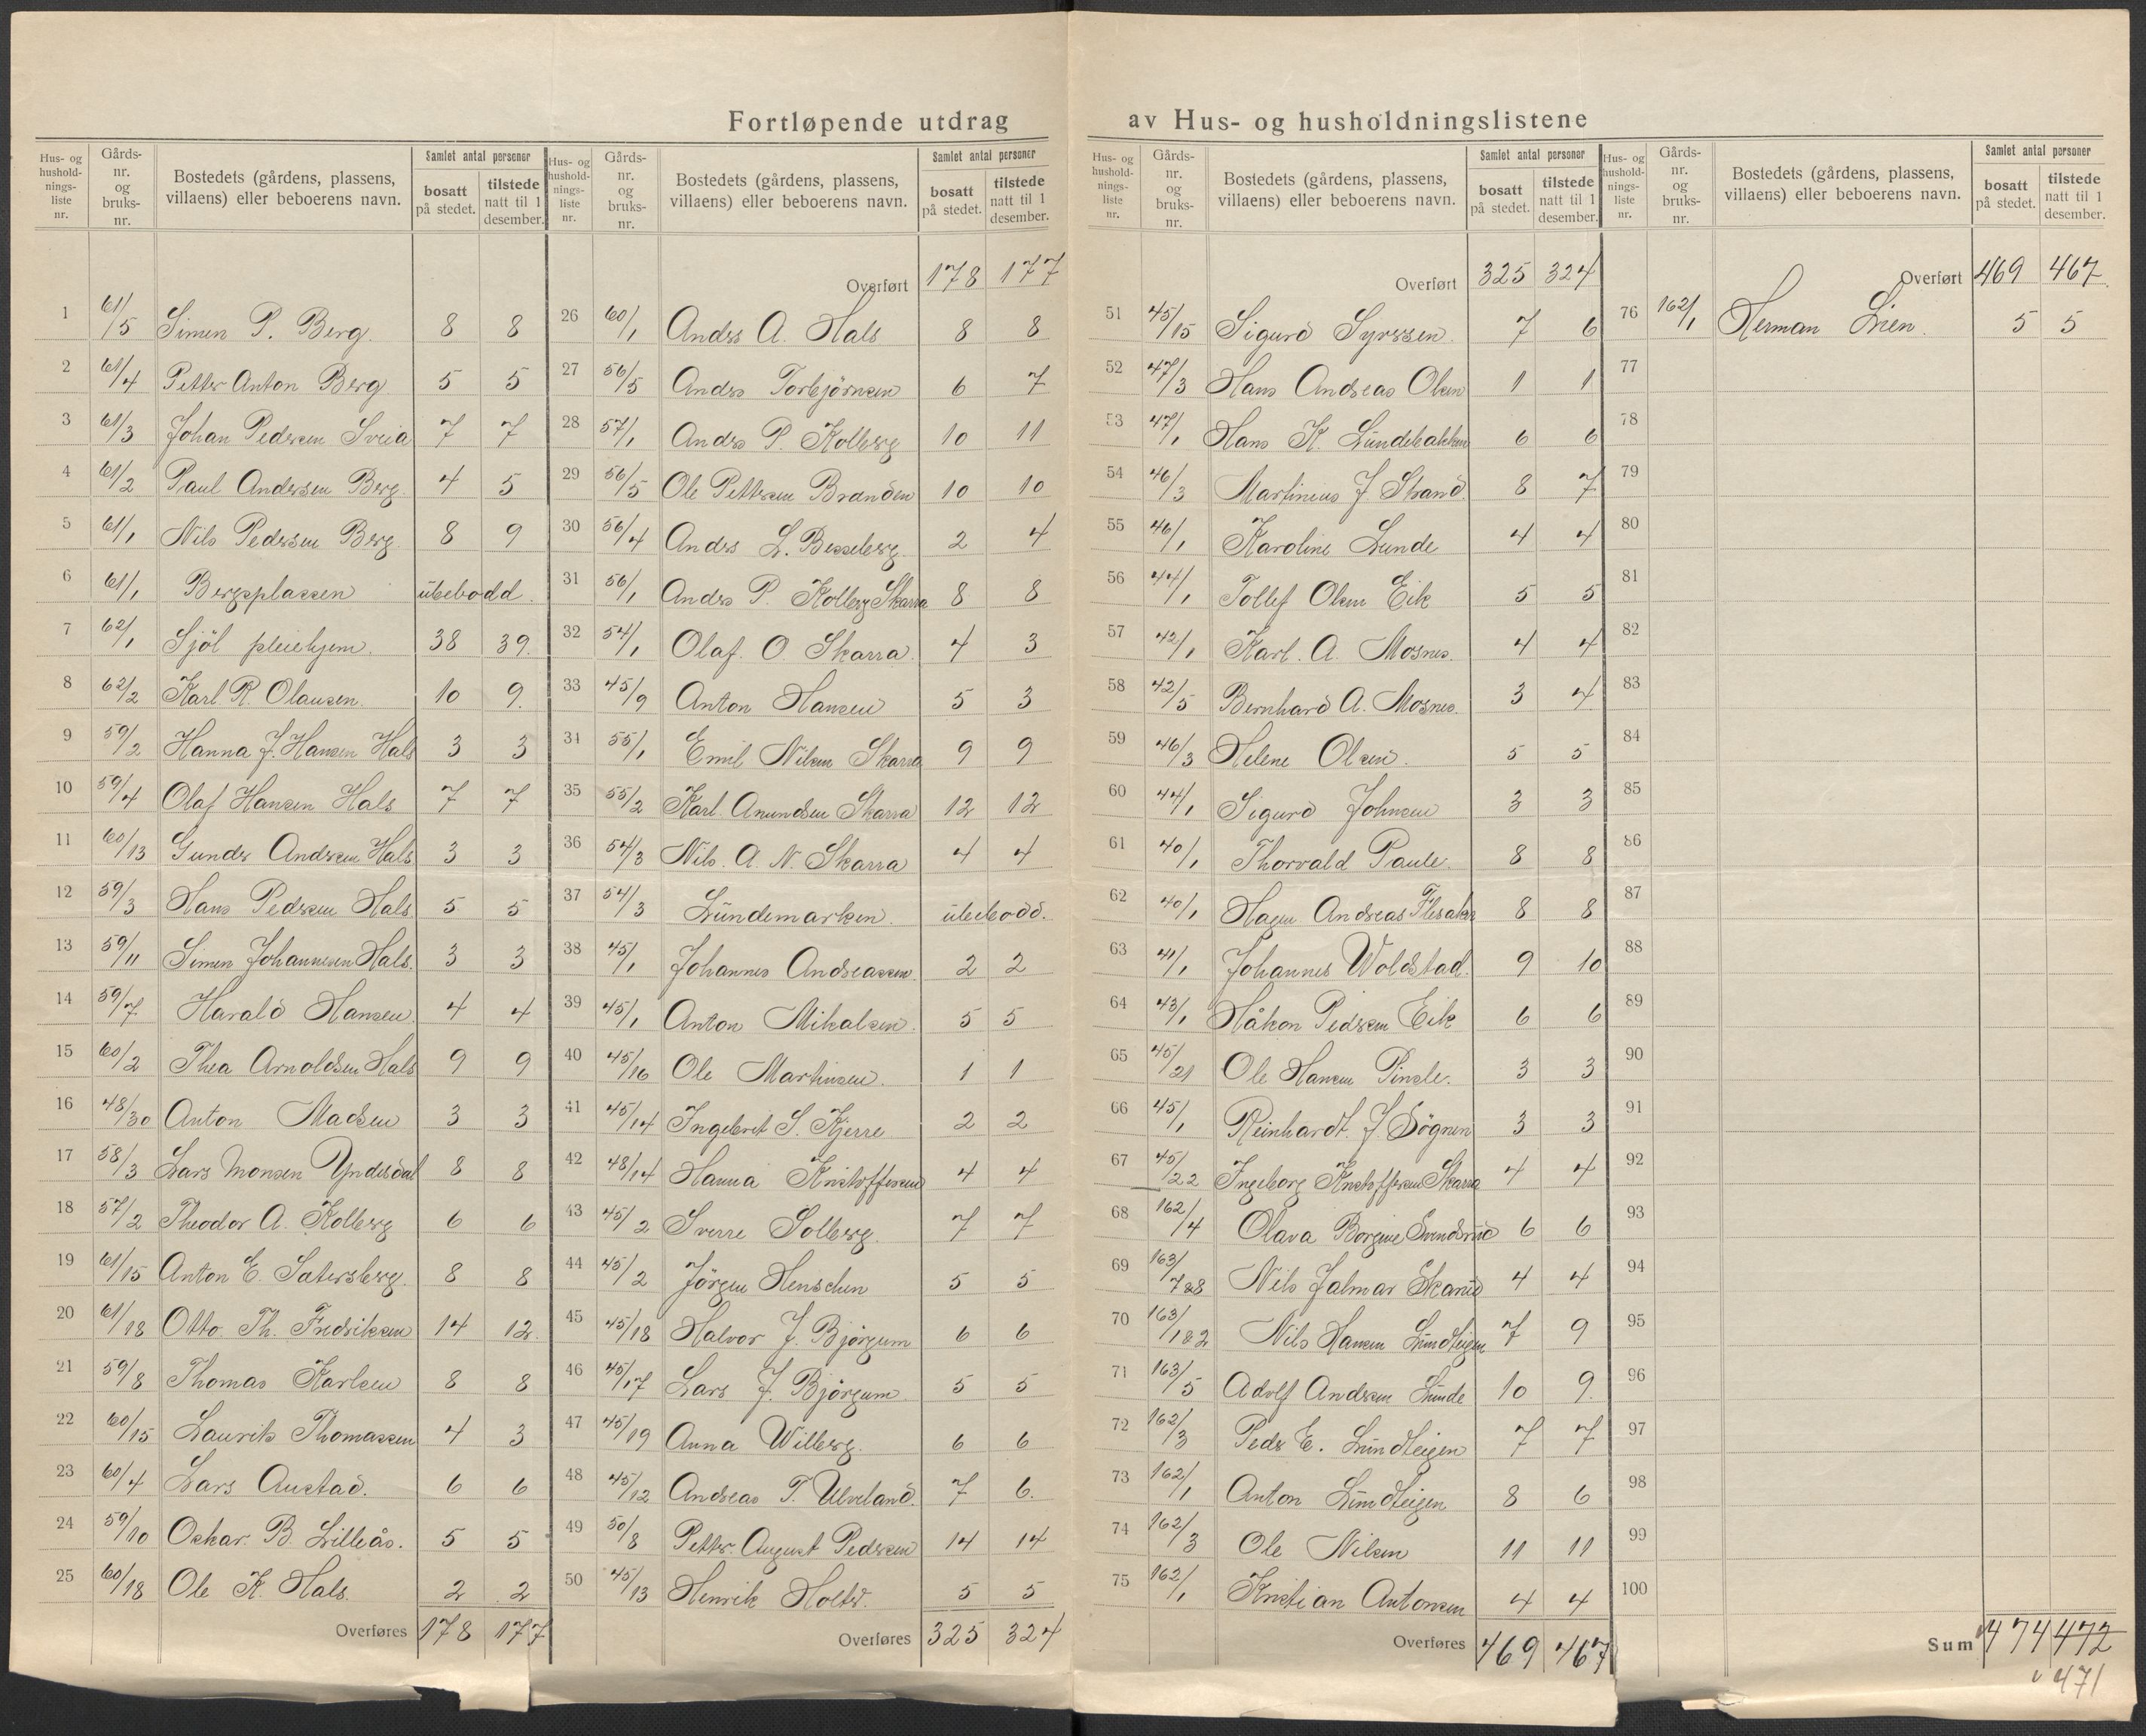 Fortløpende utdrag av Hus- og husholdningslistene
Hus- og hushold-nings-liste nr. Gårds-nr. og bruks-nr. Bostedets (gårdens, plassens, villaens) eller beboerens navn. Samlet antal personer bosatt på stedet. tilstede natt til 1 desember.
1 61/5 Simen P. Berg. 8 8
2 61/4 Petter Anton Berg 5 5
3 61/3 Johan Pedersen Sveia 7 7
4 61/2 Paul Andersen Berg. 4 5
5 61/1 Nils Pedersen Berg. 8 9
6 61/1 Bergsplassen ubebodd.
7 62/1 Sjöl pleiehjem. 38 39.
8 62/2 Karl R. Olausen. 10 9.
9 59/2 Hanna J. Hansen Hals 3 3
10 59/4 Olaf Hansen Hals 7 7
11 60/13 Gunder Andersen Hals 3 3
12 59/3 Hans Pedersen Hals 5 5
13 59/11 Simen Johannesen Hals. 3 3
14 59/7 Harald Hansen 4 4
15 60/2 Thea Arnoldsen Hals 9 9
16 48/30 Anton Madsen 3 3
17 58/3 Lars Monsen Yndesdal 8 8
18 57/2 Theodor A. Kolberg 6 6
19 61/15 Anton E. Satersberg. 8 8
20 61/18 Otto Th. Fredriksen 14 12.
21 59/8 Thomas Karlsen 8 8
22 60/15 Laurits Thomassen 4 3
23 60/4 Lars Austad. 6 6
24 59/10 Oskar B. Lilleås. 5 5
25 60/18 Ole K. Hals. 2 2
Overføres 178 177
Hus- og hushold-nings-liste nr. Gårds-nr. og bruks-nr. Bostedets (gårdens, plassens, villaens) eller beboerens navn. Samlet antal personer bosatt på stedet. tilstede natt til 1 desember.
Overført 178 177
26 60/1 Anders A. Hals 8 8
27 56/5 Anders Torbjörnsen 6 7
28 57/1 Anders P. Kolberg 10 11
29 56/5 Ole Pettersen Branden 10 10
30 56/4 Anders L. Besseberg. 2 4
31 56/1 Anders P. Kolberg Skarra 8 8
32 54/1 Olaf O. Skarra. 4 3
33 45/9 Anton Hansen 5 3
34 55/1 Emil Nilsen Skarra 9 9
35 55/2 Karl Amundsen Skarra 12 12
36 54/3 Nils. A. N. Skarra 4 4
37 54/3 Lundemarken. ubebodd.
38 45/1 Johannes Andreassen 2 2
39 45/1 Anton Mikalsen. 5 5
40 45/16 Ole Martinsen. 1 1
41 45/14 Ingebret S. Kjerre 2 2
42 48/14 Hanna Kristoffersen 4 4
43 45/2 Sverre Solberg. 7 7
44 45/2 Jörgen Henschen 5 5
45 45/18 Halvor J. Björgum 6 6
46 45/17 Lars J. Björgum 5 5
47 45/19 Anna Willberg. 6 6
48 45/12 Andreas T. Ulveland. 7 6.
49 50/8 Petter August Pedersen 14 14
50 45/13 Henrik Holter. 5 5
Overføres 325 324
Hus- og hushold-nings-liste nr. Gårds-nr. og bruks-nr. Bostedets (gårdens, plassens, villaens) eller beboerens navn. Samlet antal personer bosatt på stedet. tilstede natt til 1 desember.
Overført 325 324
51 45/15 Sigurd Syrssen. 7 6
52 47/3 Hans Andreas Olsen 1 1
53 47/1 Hans K. Lundebakken 6 6
54 46/3 Martinius J. Strand. 8 7
55 46/1 Karoline Lunde 4 4
56 44/1 Tollef Olsen Eik 5 5
57 42/1 Karl. A. Mosnes. 4 4
58 42/5 Bernhard A. Mosnes. 3 4
59 46/3 Helene Olsen. 5 5
60 44/1 Sigurd Johnsen 3 3
61 40/1 Thorvald Paule. 8 8
62 40/1 Hagen Andreas Flesaker 8 8
63 41/1 Johannes Woldstad. 9 10
64 43/1 Håkon Pedersen Eik 6 6
65 45/21 Ole Hansen Pinsle. 3 3
66 45/1 Reinhardt. J. Sögnen 3 3
67 45/22 Ingeborg Kristoffersen Skarra 4 4
68 162/4 Olava Borgine Svendsrud 6 6
69 163/7&8 Nils Jalmar Skarud 4 4
70 163/1&2 Nils Hansen Lundteigen 7 9
71 163/5 Adolf Andersen Lunde 10 9.
72 162/3 Peder E. Lundteigen 7 7
73 162/1 Anton Lundteigen 8 6
74 162/3 Ole Nilsen 11 11
75 162/1 Kristian Antonsen 4 4
Overføres 469 467
Hus- og hushold-nings-liste nr. Gårds-nr. og bruks-nr. Bostedets (gårdens, plassens, villaens) eller beboerens navn. Samlet antal personer bosatt på stedet. tilstede natt til 1 desember.
Overført 469 467
76 162/1 Herman Lien. 5 5
77
78
79
80
81
82
83
84
85
86
87
88
89
90
91
92
93
94
95
96
97
98
99
100
Sum 474 472
471